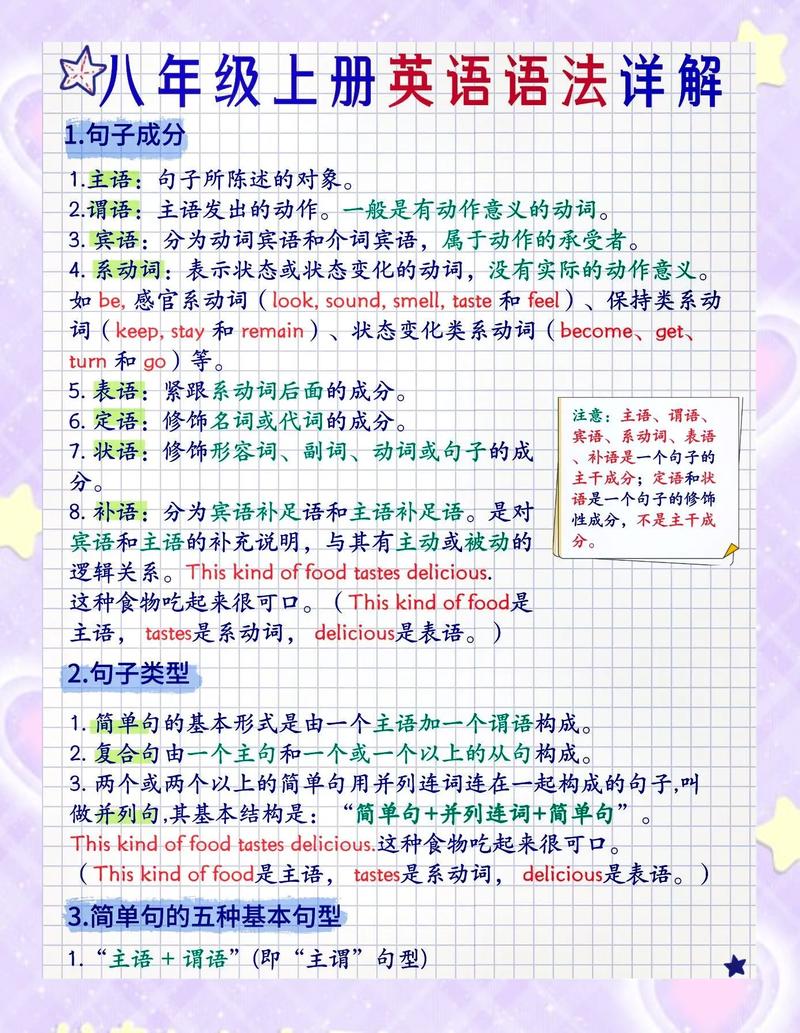 八年级上册英语语法详解
1.句子成分
1.主语：句子所陈述的对象。
2.谓语：主语发出的动作。一般是有动作意义的动词。
3. 宾语：分为动词宾语和介词宾语，属于动作的承受者。
4. 系动词：表示状态或状态变化的动词，没有实际的动作意义。
如 be, 感官系动词（look, sound, smell, taste 和 feel）、保持类系动
词（keep, stay 和 remain）、状态变化类系动词（become、get、
turn 和 go）等。
5. 表语：紧跟系动词后面的成分。
6. 定语：修饰名词或代词的成分。
7. 状语：修饰形容词、副词、动词或句子的成
分。
8. 补语：分为宾语补足语和主语补足语。是对
宾语和主语的补充说明，与其有主动或被动的
逻辑关系。This kind of food tastes delicious.
这种食物吃起来很可口。（This kind of food是
主语， tastes是系动词， delicious是表语。）
注意：主语、谓语、
宾语、系动词、表语
、补语是一个句子的
主干成分；定语和状
语是一个句子的修饰
性成分，不是主干成
分。
2.句子类型
1. 简单句的基本形式是由一个主语加一个谓语构成。
2. 复合句由一个主句和一个或一个以上的从句构成。
3. 两个或两个以上的简单句用并列连词连在一起构成的句子,叫
做并列句,其基本结构是：“简单句+并列连词+简单句”。
This kind of food tastes delicious.这种食物吃起来很可口。
（This kind of food是主语， tastes是系动词， delicious是表语。）
3.简单句的五种基本句型
1.“主语 + 谓语”(即“主谓”句型)